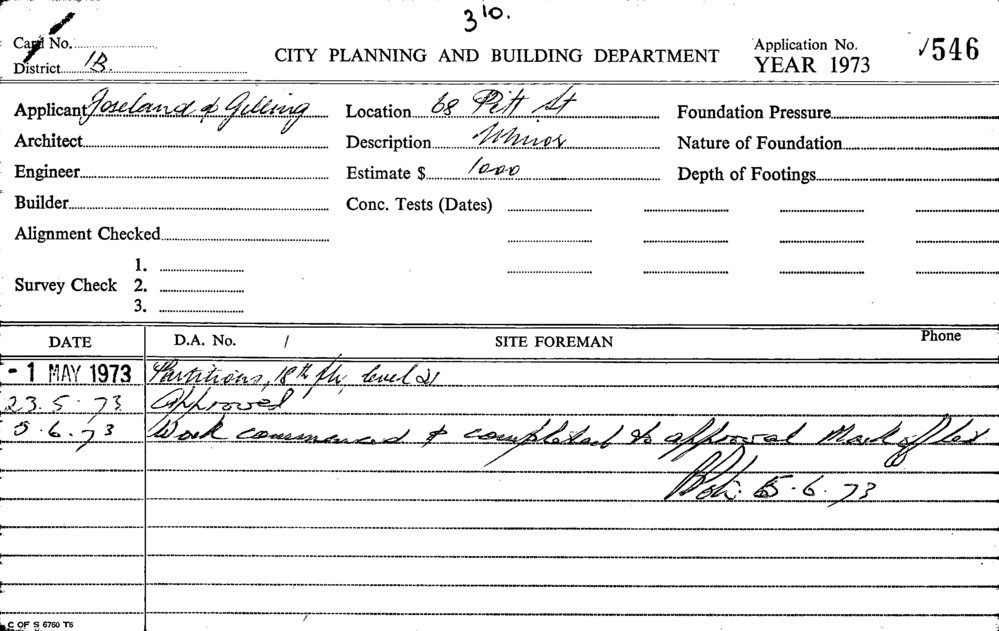 310.
Card No.
District 1B.
CITY PLANNING AND BUILDING DEPARTMENT
Application No.
YEAR 1973
✓546
Applicant Joseland & Gilling
Location 68 Pitt St
Foundation Pressure
Architect
Description Minor
Nature of Foundation
Engineer
Estimate $ 1000
Depth of Footings
Builder
Conc. Tests (Dates)
Alignment Checked
Survey Check
1.
2.
3.
DATE
D.A. No. /
SITE FOREMAN
Phone
- 1 MAY 1973 Partitions, 18th flr, level 21
23.5.73 Approved
5.6.73 Work commenced & completed to approval Mark off
5.6.73
C OF S 6760 T6